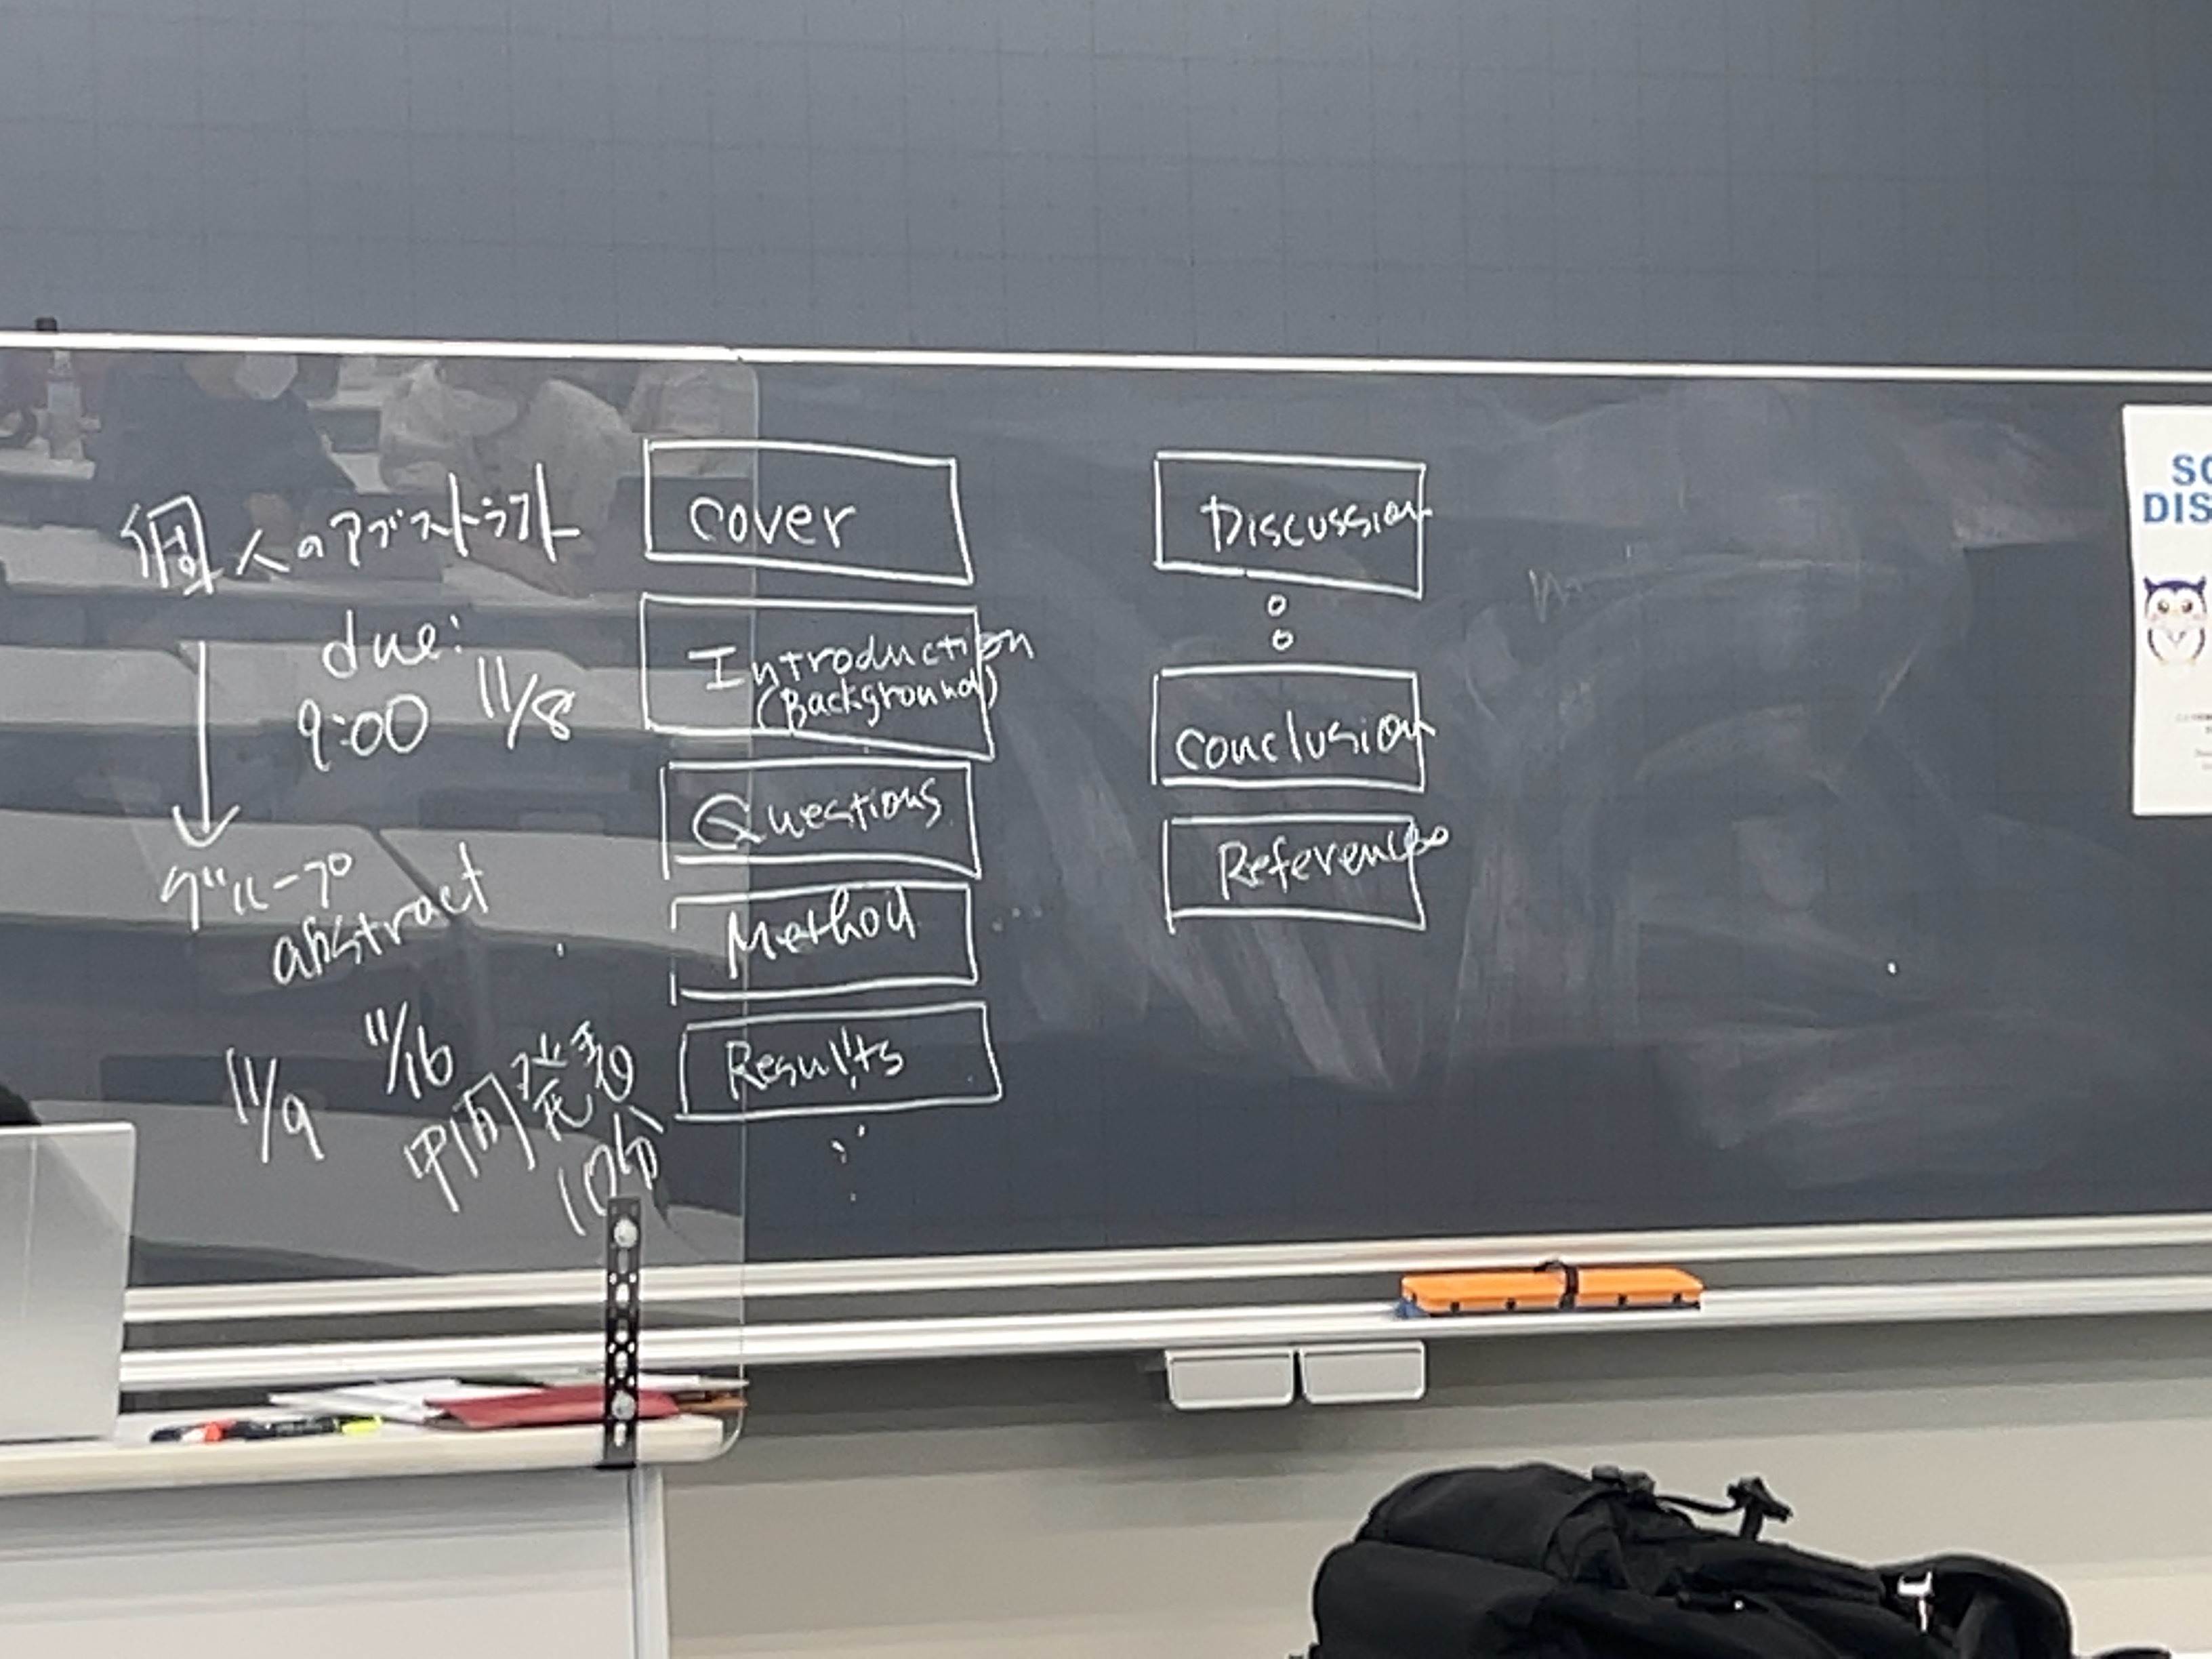 個人のアブストラクト
due:
9:00 11/8
グループ
abstract
11/9 11/16
中間発表
10分
cover
Introduction
(Background)
Questions
Method
Results
Discussion
Conclusion
Reference
SC
DIS